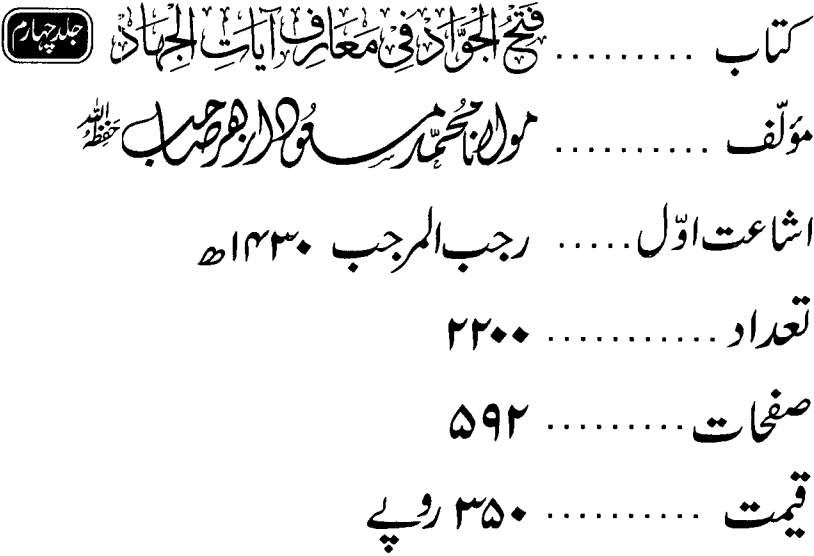 کتاب ......... فَتْحُ الْجَوَّادْ فِیْ مَعَارِفِ آیَاتِ الْجِهَادْ جلد چہارم
مؤلّف .......... مولانا محمّد مسعود ازهر صاحب حفظہُ اللہ
اشاعت اوّل ..... رجب المرجب ۱۴۳۰ھ
تعداد ........... ۲۲۰۰
صفحات ......... ۵۹۲
قیمت .......... ۳۵۰ روپے